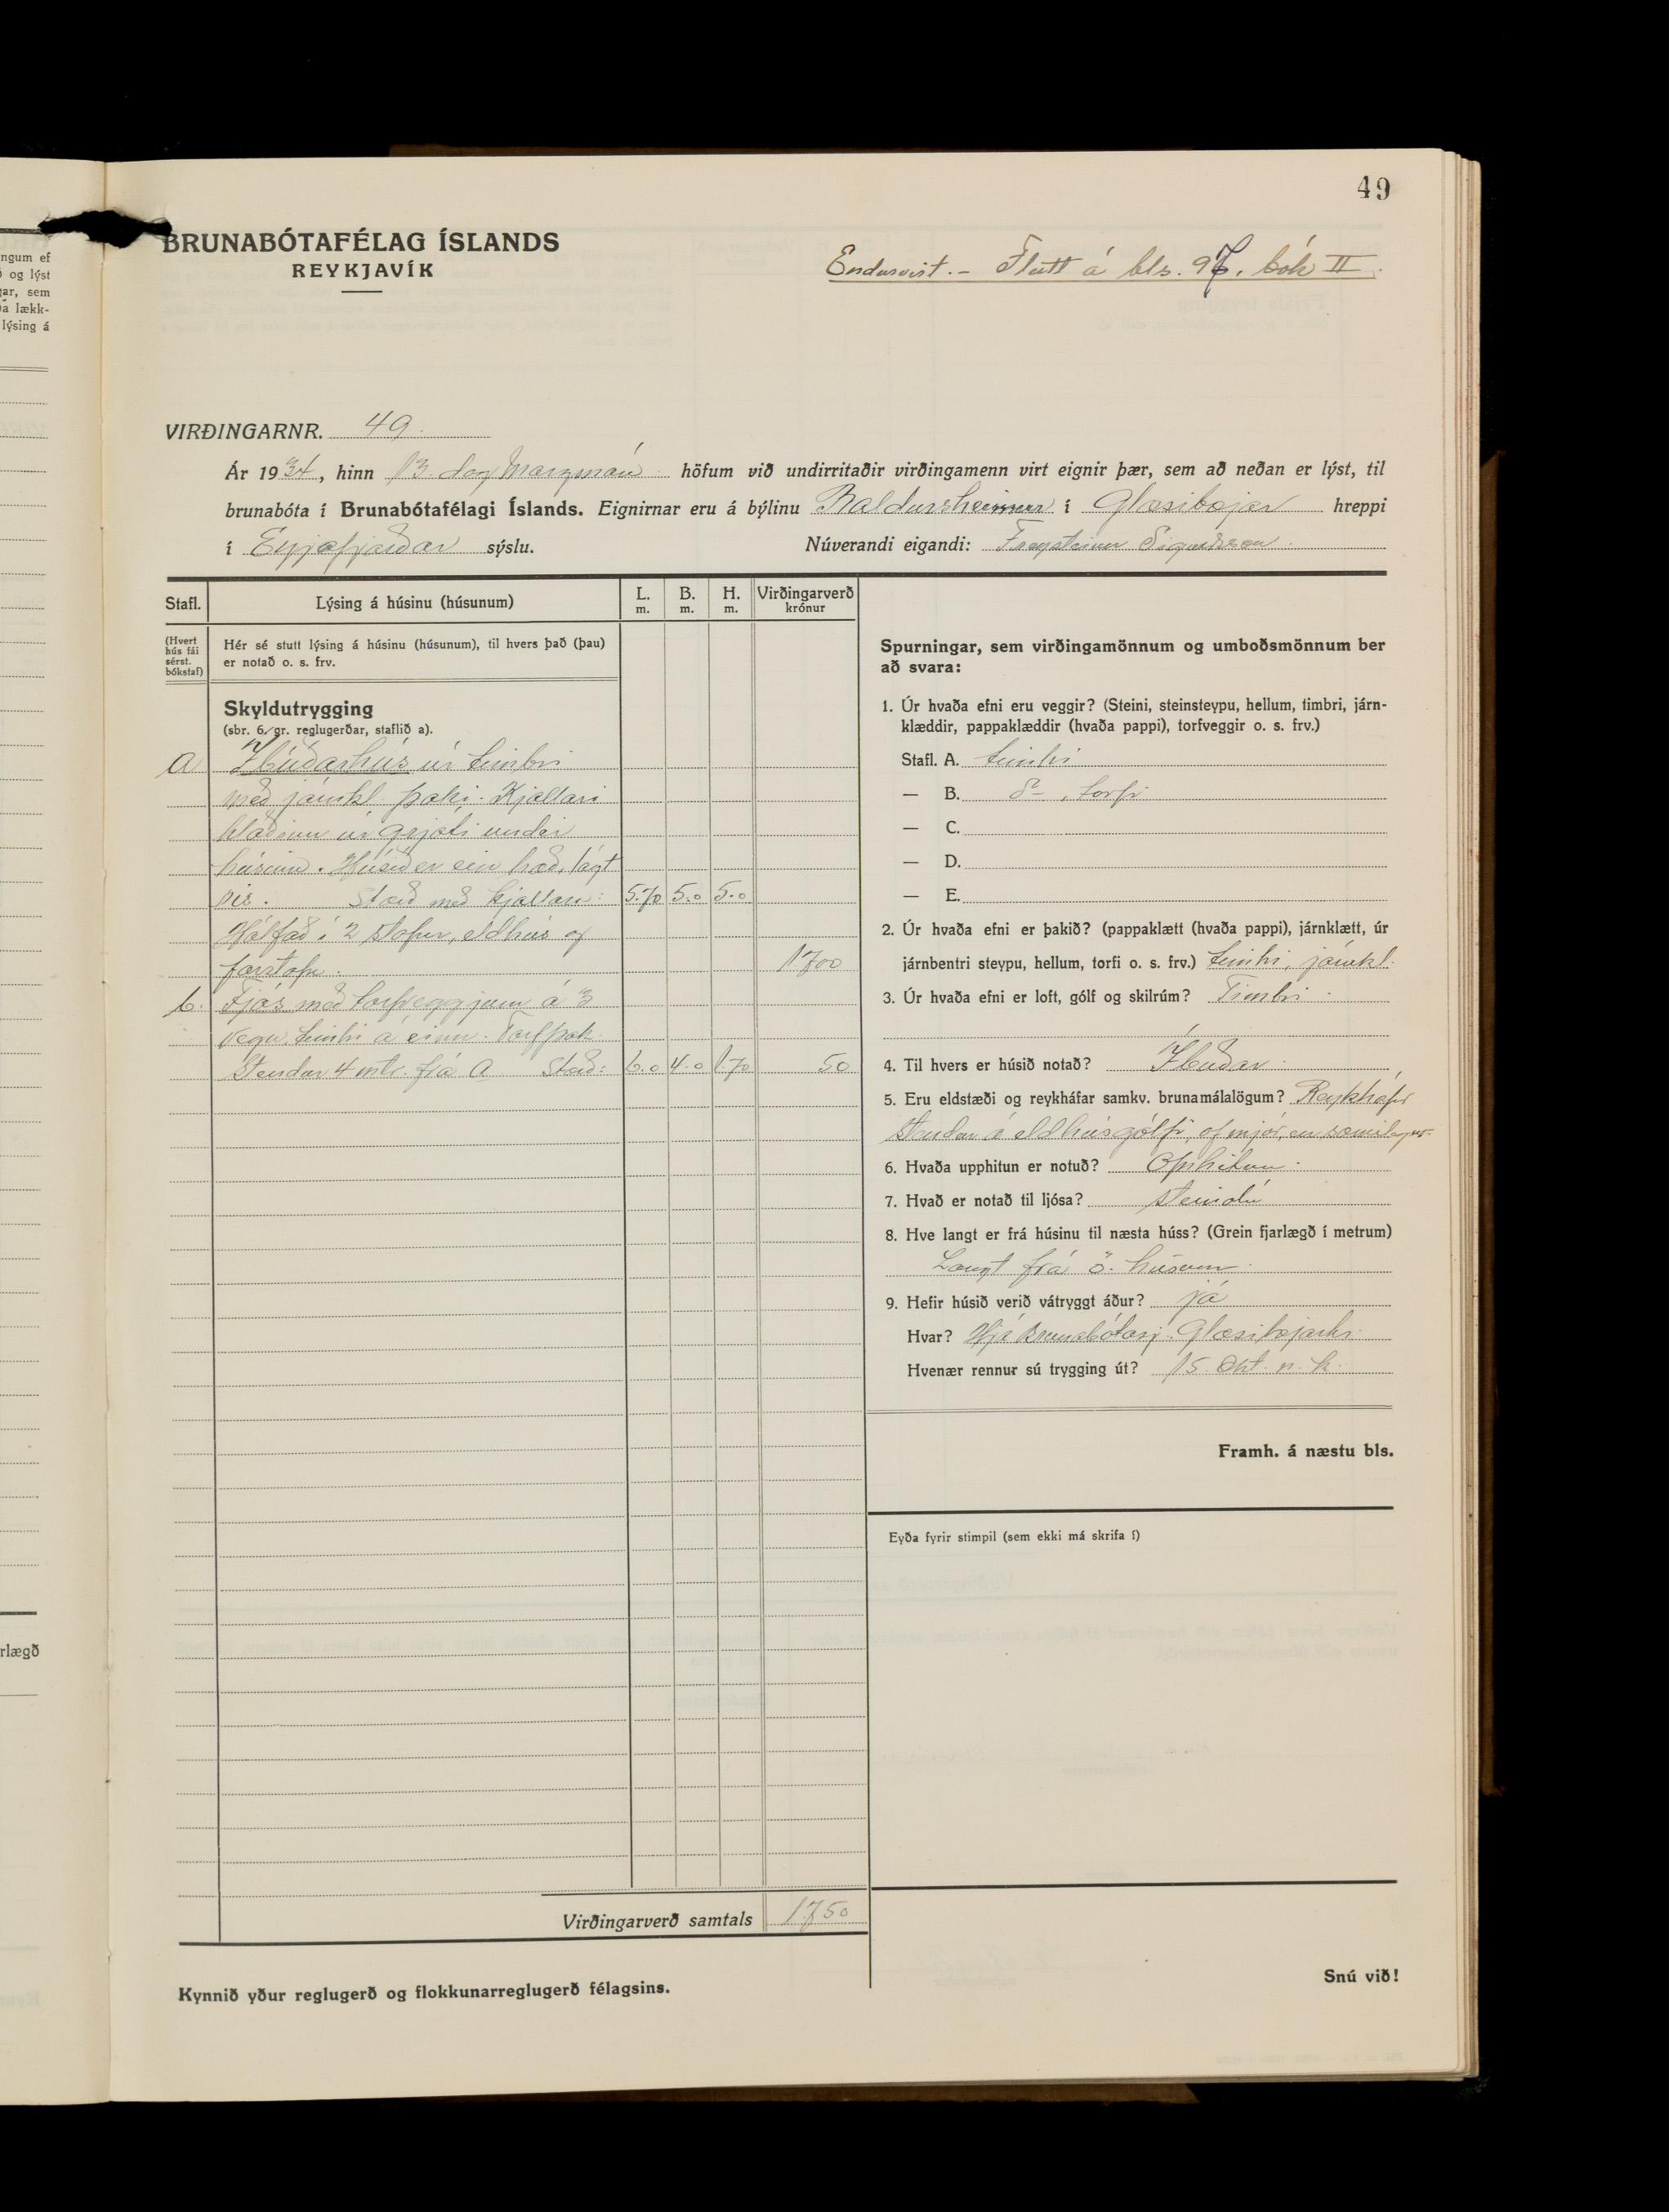 49
BRUNABÓTAFÉLAG ÍSLANDS
REYKJAVÍK
Endurvirt. - Flutt á bls. 97. bók II.
VIRÐINGARNR. 49.
Ár 1934, hinn 13. dag Marzmán. höfum við undirritaðir virðingamenn virt eignir þær, sem að neðan er lýst, til
brunabóta í Brunabótafélagi Íslands. Eignirnar eru á býlinu Baldursheimur í Glæsibæjar hreppi
í Eyjafjarðar sýslu. Núverandi eigandi: Freysteinn Sigurðsson.
Stafl. Lýsing á húsinu (húsunum) L. m. B. m. H. m. Virðingarverð krónur
(Hvert hús fái sérst. bókstaf)
Hér sé stutt lýsing á húsinu (húsunum), til hvers það (þau)
er notað o. s. frv.
Skyldutrygging
(sbr. 6. gr. reglugerðar, staflið a).
a Íbúðarhús úr timbri
með járnkl. þaki. Kjallari
hlaðinn úr grjóti undir
húsinu. Húsið er ein hæð, lágt
ris. Stærð með kjallara: 5.70 5.0 5.0
Hólfað í 2 stofur, eldhús og
forstofu. 1700
b. Fjós með torfveggjum á 3
vegu, timbri á einn. Torfþak.
Stendur 4 mtr. frá A Stærð: 6.0 4.0 1.70 50
Virðingarverð samtals 1750
Kynnið yður reglugerð og flokkunarreglugerð félagsins.
Spurningar, sem virðingamönnum og umboðsmönnum ber
að svara:
1. Úr hvaða efni eru veggir? (Steini, steinsteypu, hellum, timbri, járn-
klæddir, pappaklæddir (hvaða pappi), torfveggir o. s. frv.)
Stafl. A. timbri
— B. do , torfi
— C.
— D.
— E.
2. Úr hvaða efni er þakið? (pappaklætt (hvaða pappi), járnklætt, úr
járnbentri steypu, hellum, torfi o. s. frv.) timbri, járnkl.
3. Úr hvaða efni er loft, gólf og skilrúm? Timbri.
4. Til hvers er húsið notað? Íbúðar.
5. Eru eldstæði og reykháfar samkv. brunamálalögum? Reykháfur
stendur á eldhúsgólfi, of mjór, en
6. Hvaða upphitun er notuð? Ofnhitun.
7. Hvað er notað til ljósa? steinolía
8. Hve langt er frá húsinu til næsta húss? (Grein fjarlægð í metrum)
Langt frá ö. húsum.
9. Hefir húsið verið vátryggt áður? já
Hvar? Hjá Brunabótasj. Glæsibæjarhr.
Hvenær rennur sú trygging út? 15. Okt. n. k.
Framh. á næstu bls.
Eyða fyrir stimpil (sem ekki má skrifa í)
Snú við!
ngum ef
og lýst
gar, sem
a lækk-
lýsing á
rlægð